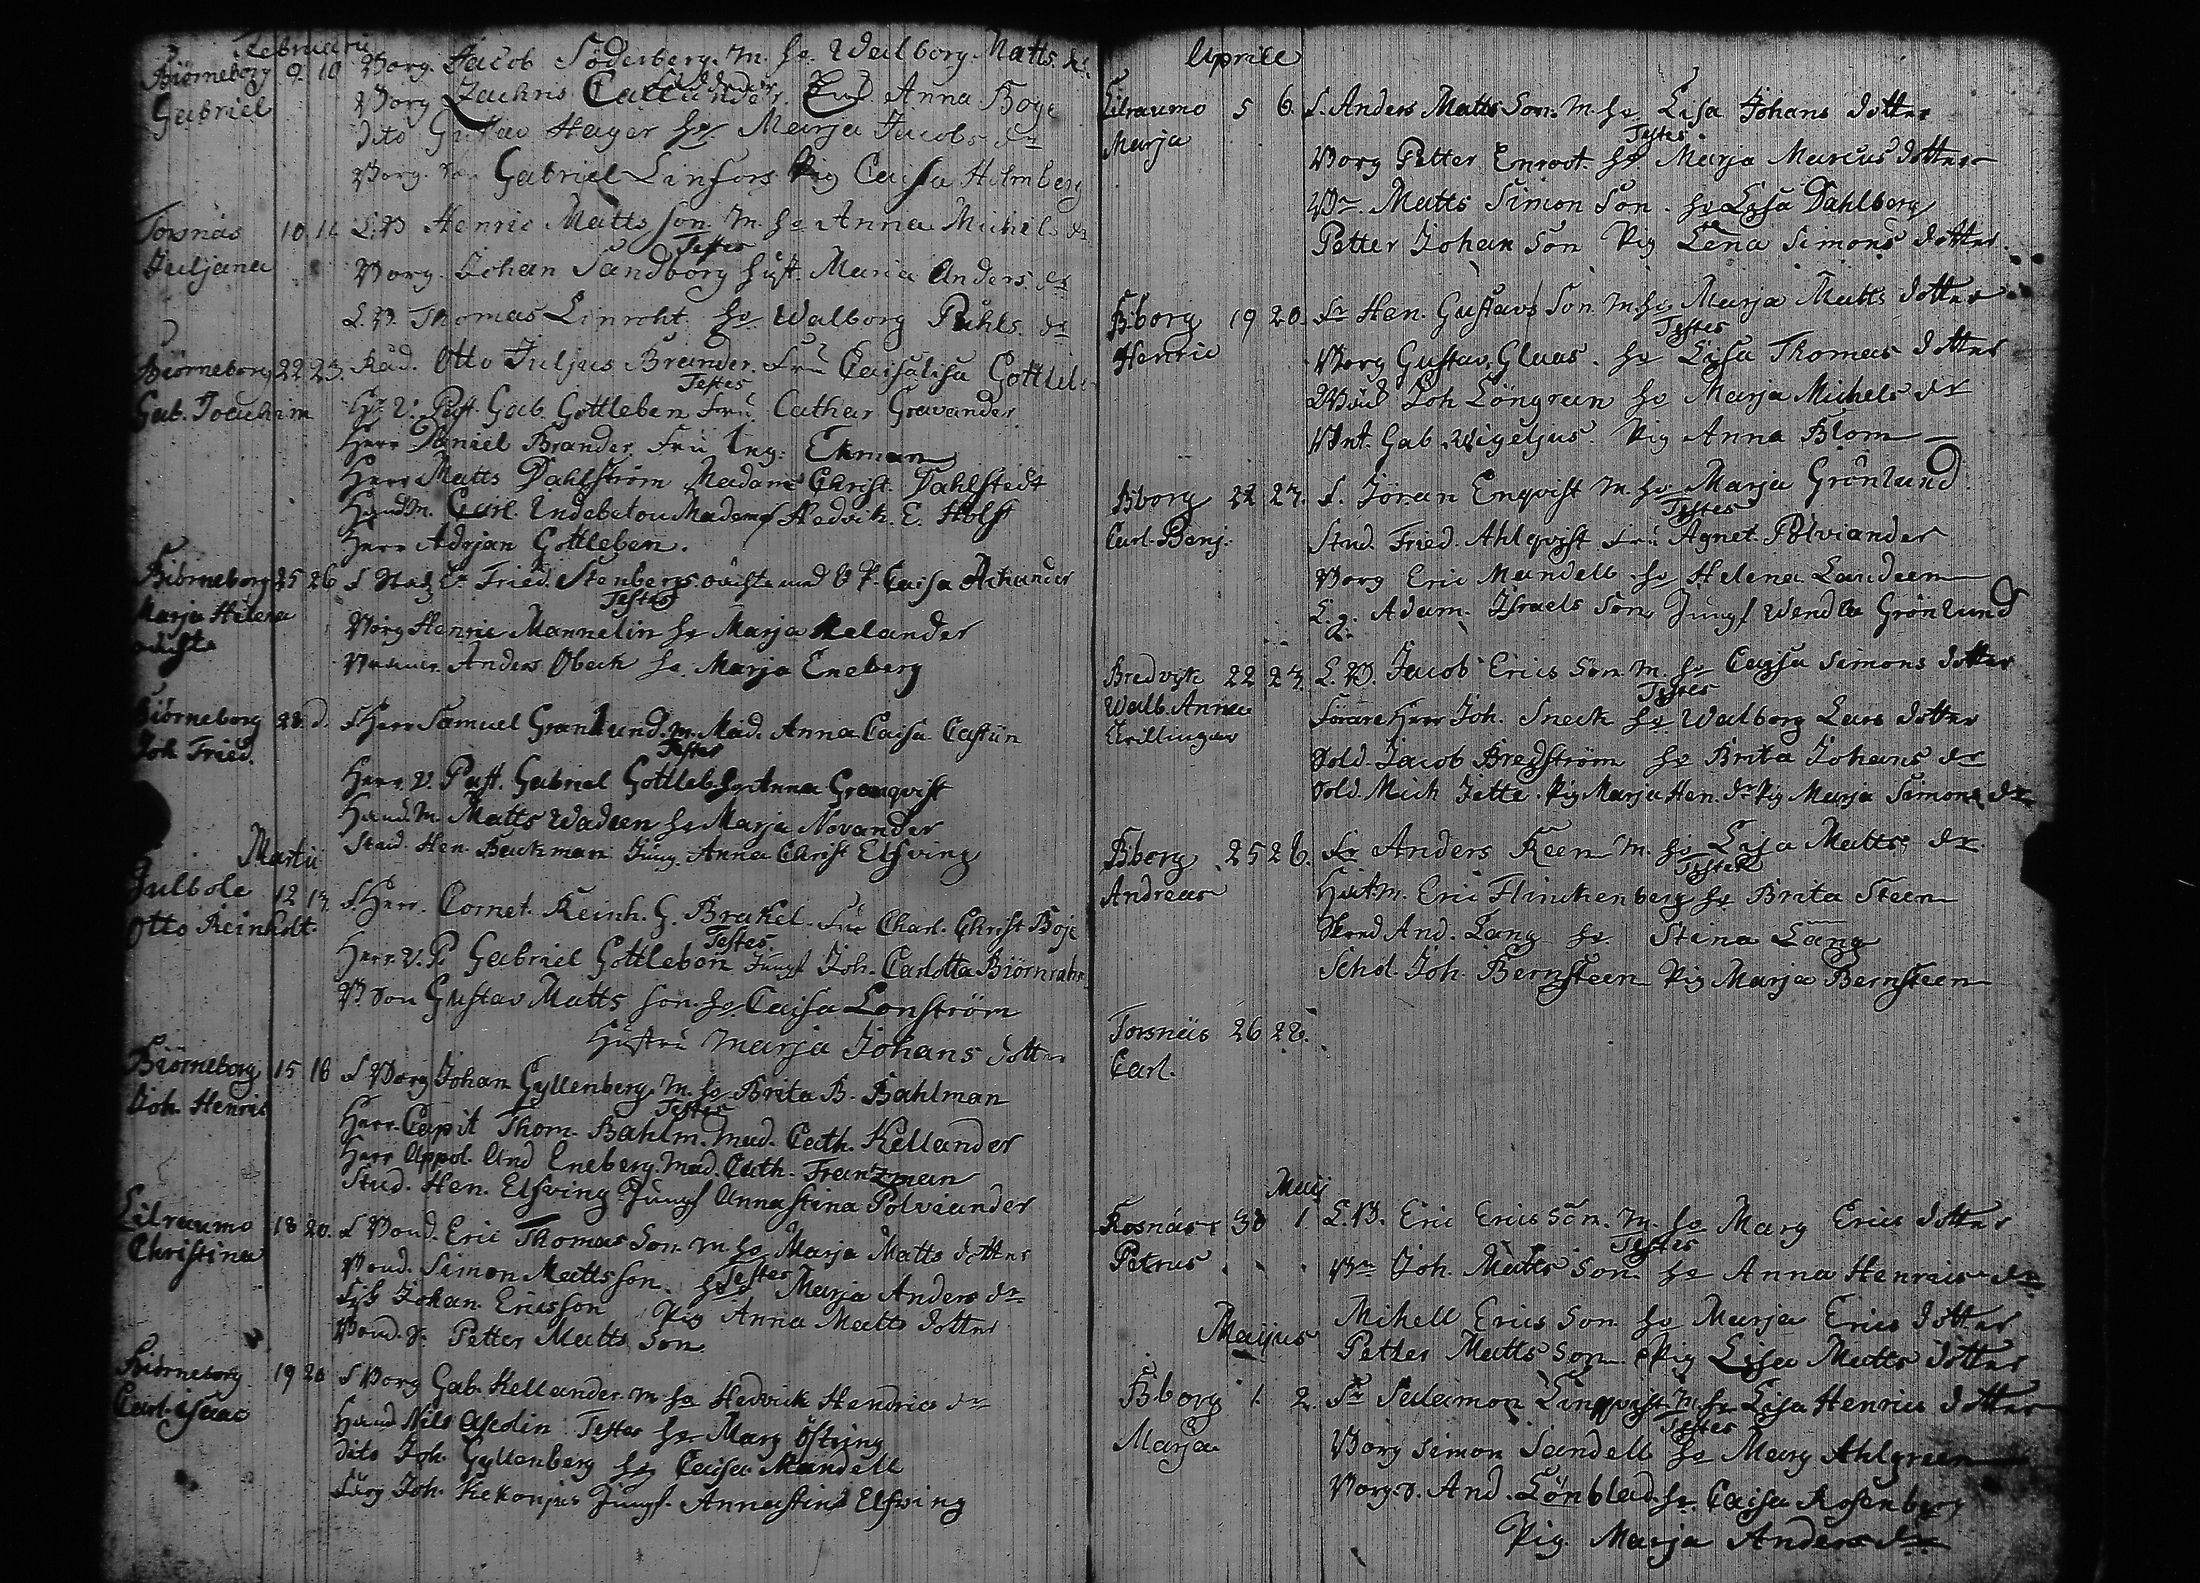 Februarii
Biörneborg 9 10 Borg. Jacob Söderberg. m. h. Walborg Matts dr.
Gabriel Borg Zachris Callander. Anna Boge
dito Gustav Hager h. Marja Jacobs dr
Borg. Gabriel Linfors Pig Caisa Holmberg
Torsnäs 10 11 L.B Henric Matts son m. h. Anna Michels dr
Testes
Juljana Borg. Johan Sandborg hust. Maria Anders dr
L.B. Thomas Linroht h. Walborg Påhls dr
Biörneborg 22 23. Råd. Otto Juljus Brander. Fru Caisalisa Gottleb
Testes
Gab. Joachim Hr V. Past. Gab. Gottleben Fru Cathar Gravander
Herr Daniel Brander Fru Ing: Ekman
Herr Matts Dahlström Madame Christ. Dahlstedt
Handm. Carl. Indebetou Madem Hedvik. E. Holst
Herr Adrjan Gottleben.
Biörneborg 25 26 Fried. Stenbergs oächta med Caisa
Testes
Marja Helena Borg Henric Mannelin h. Marja Melander
oächta Anders Obeck h. Marja Eneberg
Biörneborg 28 d. S Herr Samuel Granlund. m. Mad. Anna Caisa Castin
Testes
Joh. Fried. Herr V. Past. Gabriel Gottleb. h. Anna Granqvist
Handm. Matts Wadeen h. Marja Novander
Stud. Hen. Backman Jung. Anna Christ Elfving
Martii
Gulböle 12 13. S Herr. Cornet. Reinh. G. Brakel. Fru Charl. Christ Boje
Testes
Otto Reinholt. Herr. V. P. Gabriel Gottleben Jungf Joh. Carlotta Biörnrahm
B. son Gustav Matts son. h. Caisa Lonström
Hustru Marja Johans dotter
Biörneborg 15 16 S Borg Johan Gyllenberg. m. h. Brita B. Bahlman
Testes
Joh. Henric Herr. Capit Thom. Bahlm. Mad. Cath. Kellander
Herr Appol. And Eneberg. Mad. Cath. Frantzman
Stud. Hen. Elfving Jungf Annastina Polviander
Lilraumo 18 20. S Bond. Eric Thomas Son. m h. Marja Matts dotter
Christina Bond. Simon Mattsson. Testes h. Marja Anders dr
Johan Ericsson Pig Anna Matts dotter
Bond. s. Petter Matts Son
Biörneborg 19 20 S Borg Gab. Kellander. m h. Hedvik Hendrics dr
Carl. isaac Hand Nils Ascolin Testes h. Marg Östring
dito Joh. Gyllenberg h. Caisa Mandell
Borg Joh. Kekonjus Jungf. Annastina Elfving
Aprill
Lilraumo 5 6. S. Anders Matts Son. m. h. Lisa Johans dotter
Testes
Marja Borg Petter Enroot. h. Marja Marcus dotter
Br. Matts Simon Son h. Lisa Dahlberg
Petter Johan Son Pig Lena Simons dotter
B:borg 19 20. Sr Hen. Gustavs Son m. h. Marja Matts dotter
Testes
Henric Borg Gustav. Glaas. h. Lisa Thomas dotter
Joh Löngreen h. Marja Michels dr
Gab. Wigeljus. Pig Anna Blom
B:borg 22 23. S. Jöran Enqvist m. h. Marja Grönlund
Testes
Carl. Benj. Stud. Fried. Ahlqvist Fru Agnet. Polviander
Borg Eric Mandell h. Helena Landeen
L. g. Adam. Israels Son Jungf Wendla Grönlund
Bredvik 22 23. L. B. Jacob Erics Son m. h. Caisa Simons dotter
Testes
Walb. Anna Förare Herr Joh. Sneck h. Walborg Lars dotter
Tvillingar Sold. Jacob Bredström h. Brita Johans dr
Sold. Mich Jette. Pig Marja Hen. dr Pig Marja Simons dr
B:borg 25 26. Sr Anders Keen m. h. Lisa Matts dr.
Testes
Andreas Hatm. Eric Flinckenberg h. Brita Steen
And. Lang h. Stina Lång
Schol. Joh. Bernsteen Pig Marja Bernsteen
Torsnäs 26 28.
Carl.
Maij
Kosnäs 30 1. L. B. Eric Erics Son. m. h. Marg Erics dotter
Testes
Petrus Br Joh. Matts Son h. Anna Henrics dr
Mihell Erics Son h. Marja Erics dotter
Petter Matts Son Pig Lisa Matts dotter
Maijus
B:borg 1. 2. Sr Salamon Linqvist m. h. Lisa Henrics dotter
Testes
Marja Borg Simon Sandell h. Marg Ahlgreen
Borg. s. And. Lönblad. h. Caisa Rosenberg
Pig. Marja Anders dr